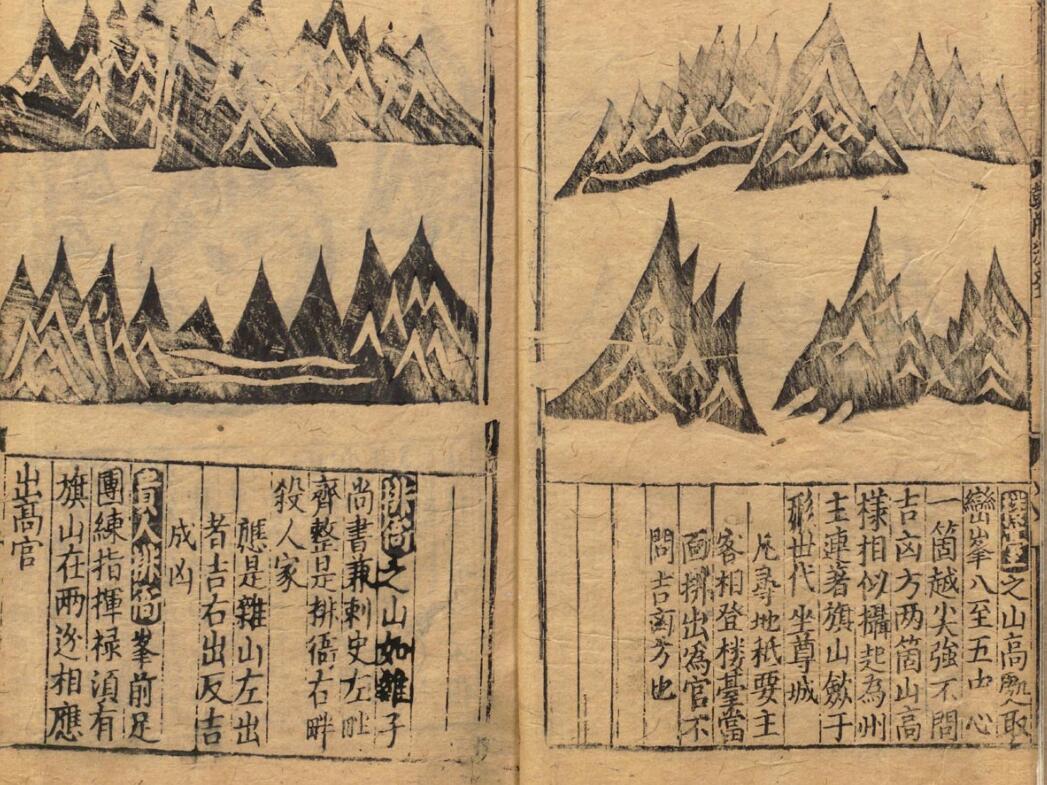 之山高取
巒峯八至五由心
一箇越尖強不問
吉凶方两箇山高
樣相似攝起為州
主連著旗山斂于
形世代坐尊城
凡尋地秪要主
客相登楼臺當
面排出為官不
問吉凶方也
排衙之山如雜子
尚書兼刺史左畔
齊整是排衙右畔
殺人家
應是雜山左出
者吉右出反吉
成凶
貴人排衙峯前足
團練指揮禄須有
旗山在两边相應
出高官